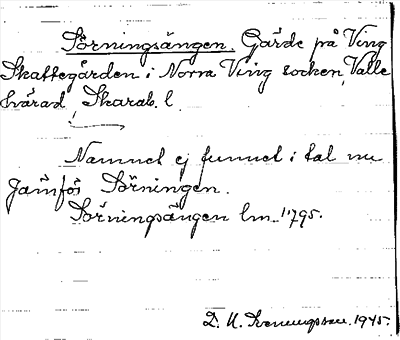 Sörningsängen. Gärde på Ving
Skattegården i Norra Ving socken, Valle
härad, Skarab. l.
Namnet ej funnet i tal nu
Jämför Sörningen.
Sörningsängen lm. 1795.
D. A. Svenningsson. 1945.